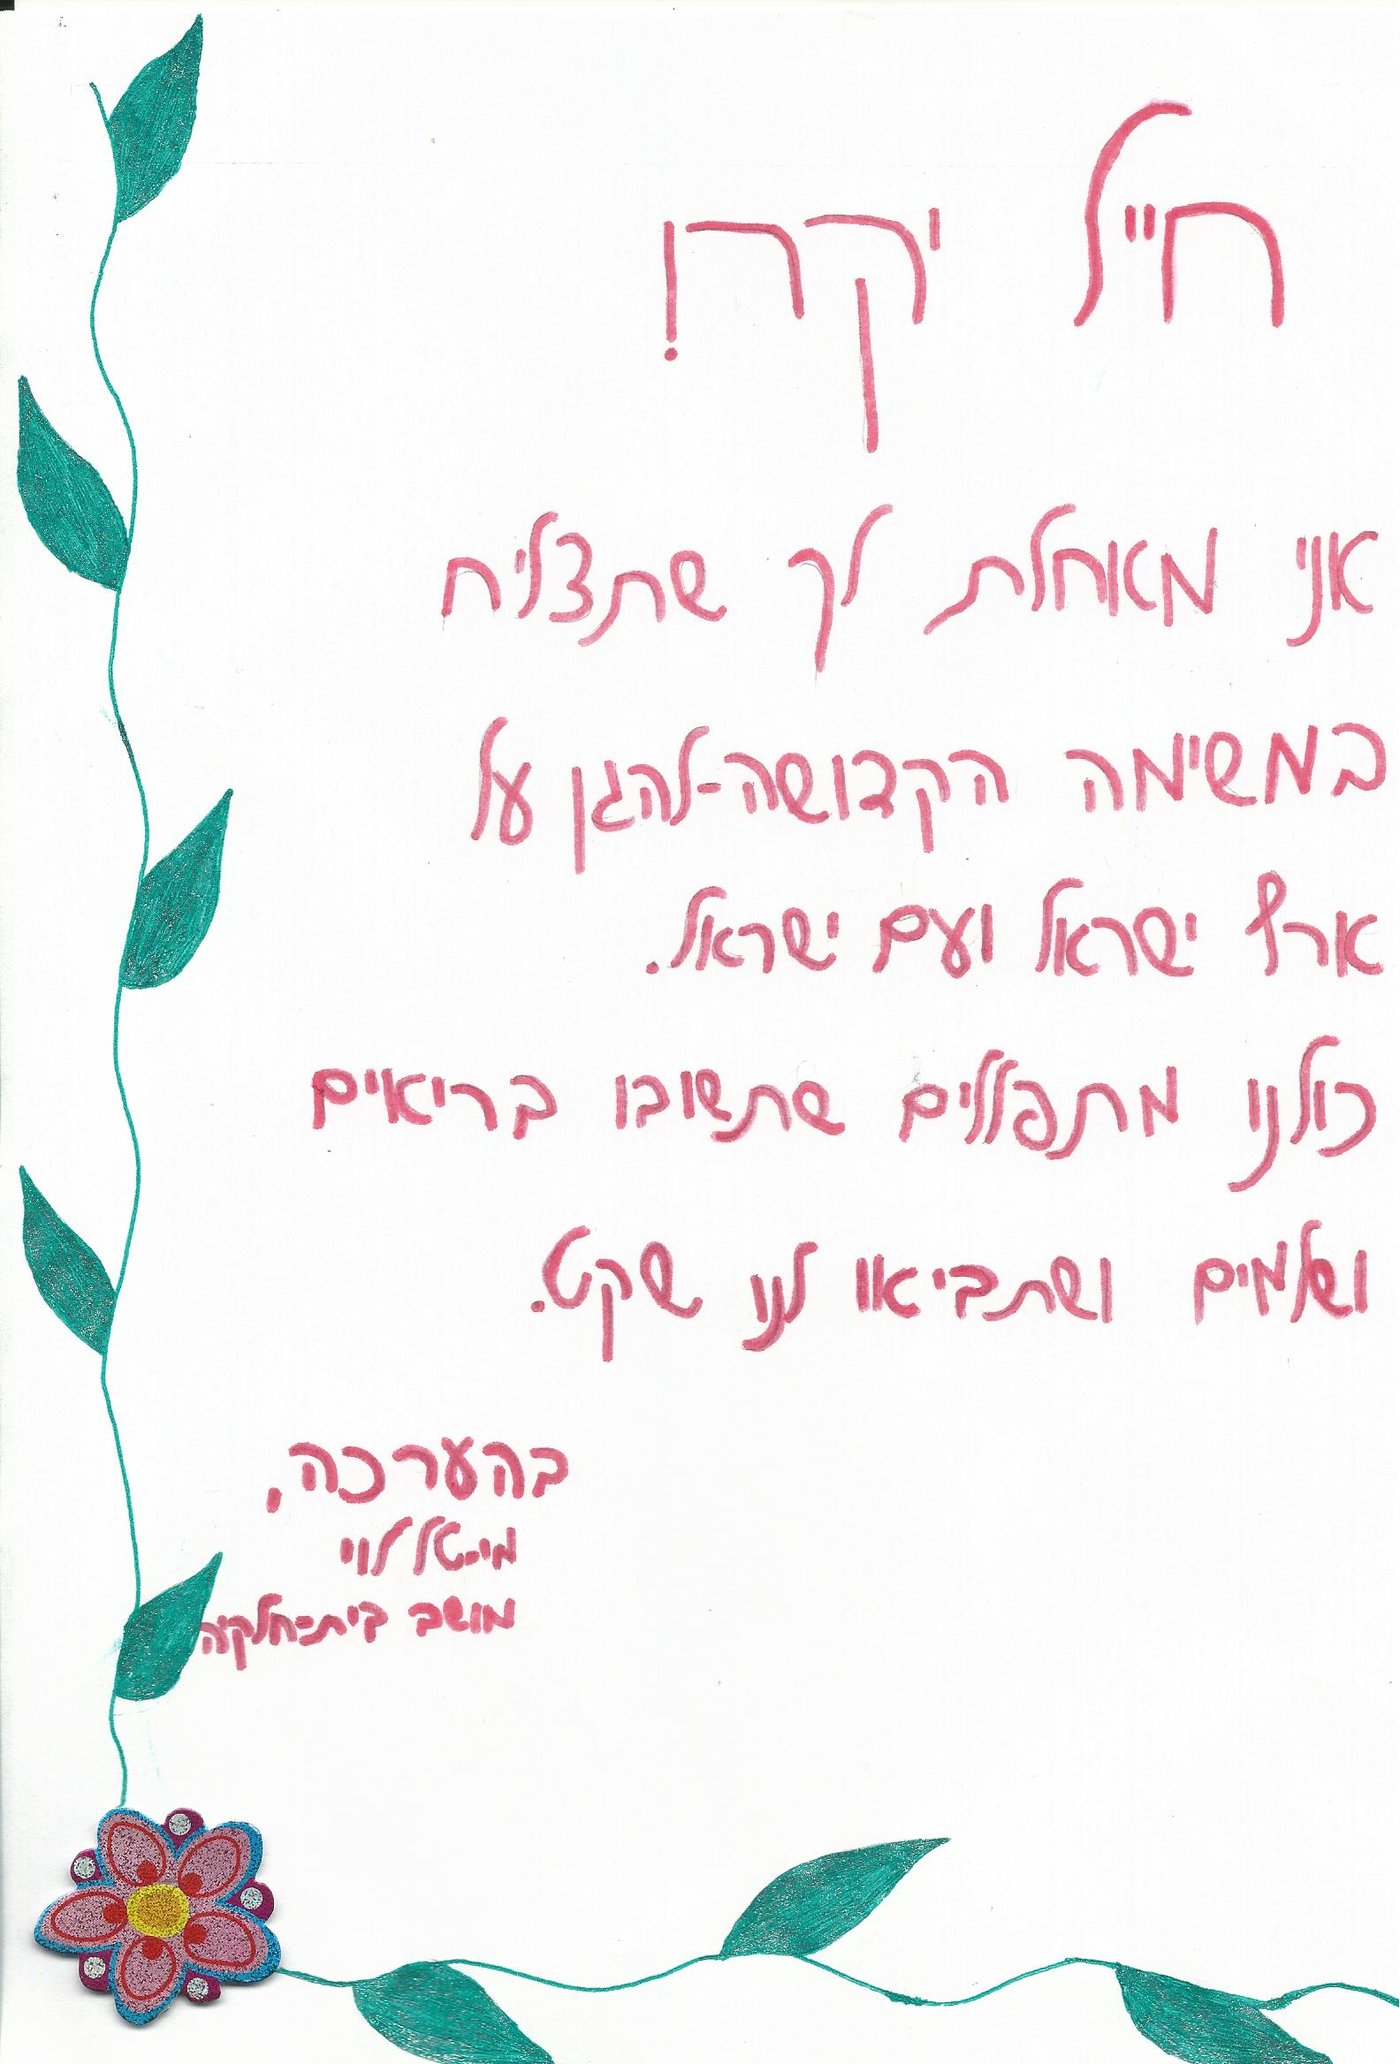 חייל יקר!
אני מאחלת לך שתצליח
במשימה הקדושה-להגן על
ארץ ישראל ועם ישראל.
כולנו מתפללים שתשובו בריאים
ושלמים ושתביאו לנו שקט.
בהערכה,
מי-טל לוי
מושב בית-חלקיה